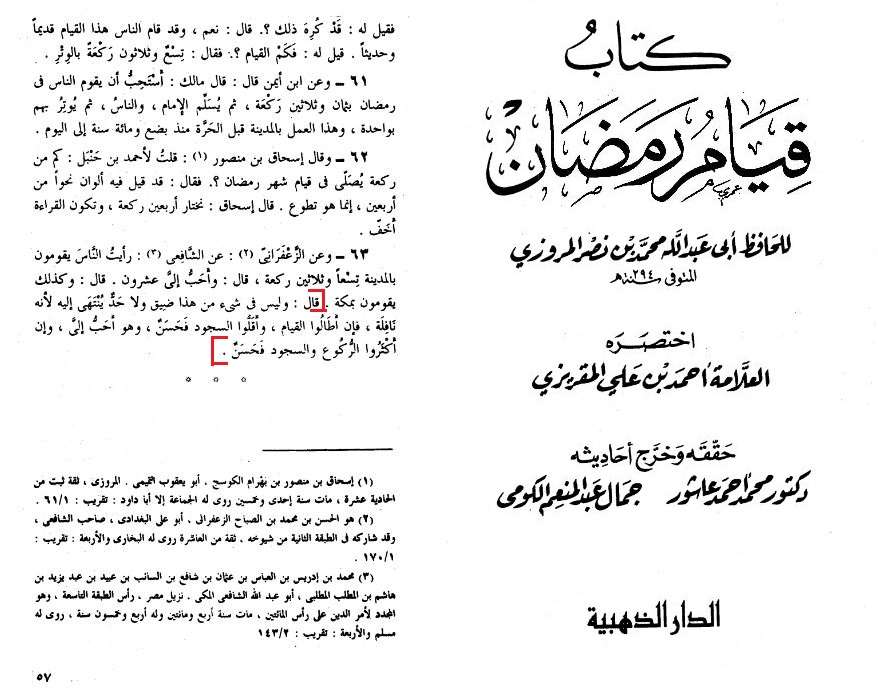 كتاب
قيام رمضان
للحافظ أبي عبد الله محمد بن نصر المروزي
المتوفى سنة ٢٩٤ هـ
اختصره
العلامة أحمد بن علي المقريزي
حققه وخرج أحاديثه
دكتور محمد أحمد عاشور جمال عبد المنعم الكومى
الدار الذهبية
فقيل له : قَدْ كُرِهَ ذلك ؟. قال : نعم ، وقد قام الناس هذا القيام قديماً
وحديثاً . قيل له : فَكَمْ القيام ؟. فقال : تِسْعٌ وثلاثون رَكْعَةً بالوِتْرِ .
٦١ ــ وعن ابن أيمن قال : قال مالك : أسْتَحِبُّ أن يقوم الناس فى
رمضان بثمان وثلاثين رَكْعَة ، ثم يُسَلّم الإمام ، والناسُ ، ثم يُوتِرُ بهم
بواحدة ، وهذا العمل بالمدينة قبل الحَرَّة منذ بضع ومائة سنة إلى اليوم .
٦٢ ــ وقال إسحاق بن منصور (١) : قلتُ لأحمد بن حَنْبَل : كم من
ركعة يُصَلّى فى قيام شهر رمضان ؟. فقال : قد قيل فيه ألوان نحواً من
أربعين ، إنما هو تطوع . قال إسحاق : نختار أربعين ركعة ، وتكون القراءة
أخَفّ .
٦٣ ــ وعن الزَّعْفَرَانِىّ (٢) : عن الشَّافِعى (٣) : رأيتُ النَّاسَ يقومون
بالمدينة تِسْعاً وثلاثين ركعة ، قال : وأحَبُّ إلىَّ عشرون . قال : وكذلك
يقومون بمكة . قال : وليس فى شىء من هذا ضيق ولا حَدٌّ يُنْتَهَى إليه لأنه
نَافِلَة ، فإن أطَالُوا القيام ، وأقَلُّوا السجود فَحَسَنٌ ، وهو أحَبُّ إلىَّ ، وإن
أكْثَرُوا الرُّكُوع والسجود فَحَسَنٌ .
(١) إسحاق بن منصور بن بَهْرام الكوسج . أبو يعقوب التميمى . المروزى ، ثقة ثبت من
الحادية عشرة ، مات سنة إحدى وخمسين روى له الجماعة إلا أبا داود : تقريب : ٦١/١ .
(٢) هو الحسن بن محمد بن الصباح الزعفرانى . أبو على البغدادى ، صاحب الشافعى ،
وقد شاركه فى الطبقة الثانية من شيوخه . ثقة من العاشرة روى له البخارى والأربعة : تقريب :
١٧٠/١ .
(٣) محمد بن إدريس بن العباس بن عثمان بن شافع بن السائب بن عبيد بن عبد يزيد بن
هاشم بن المطلب المطلبى ، أبو عبد الله الشافعى المكى . نزيل مصر ، رأس الطبقة التاسعة ، وهو
المجدد لأمر الدين على رأس المائتين ، مات سنة أربع ومائتين وله أربع وخمسون سنة ، روى له
مسلم والأربعة : تقريب : ١٤٣/٢
٥٧